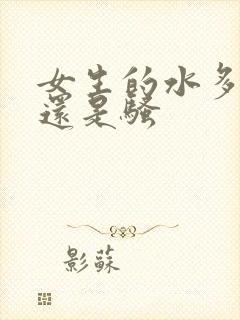 女生的水多
還是騷
影蘇